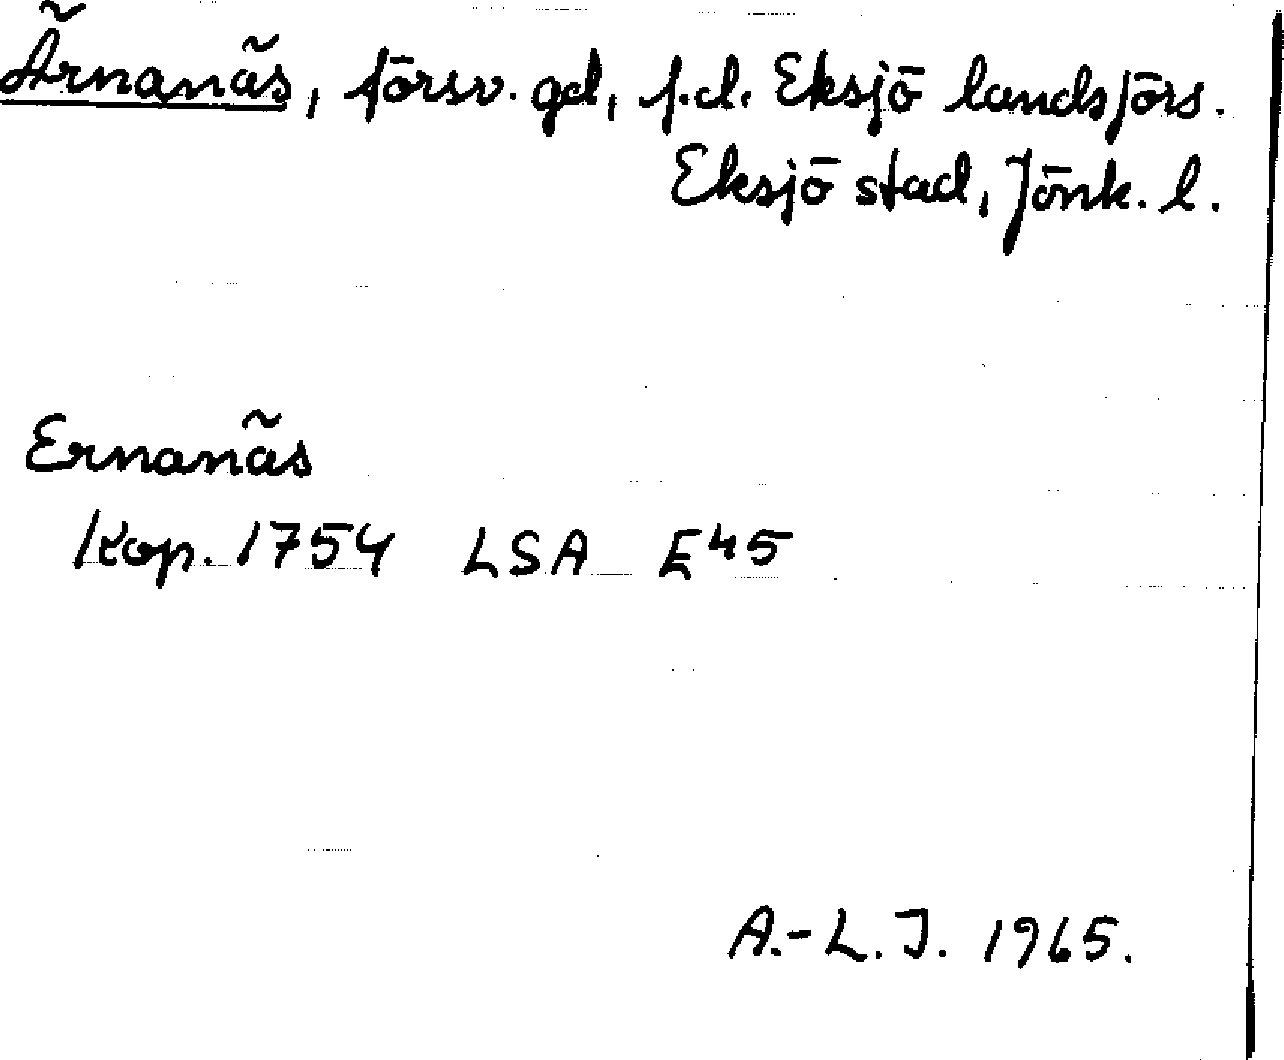 Ärnanäs, försv. gd, f.d. Eksjö landsförs.
Eksjö stad, Jönk. l.
Ernanäs
Kop. 1754 LSA E45
A.-L.J. 1965.